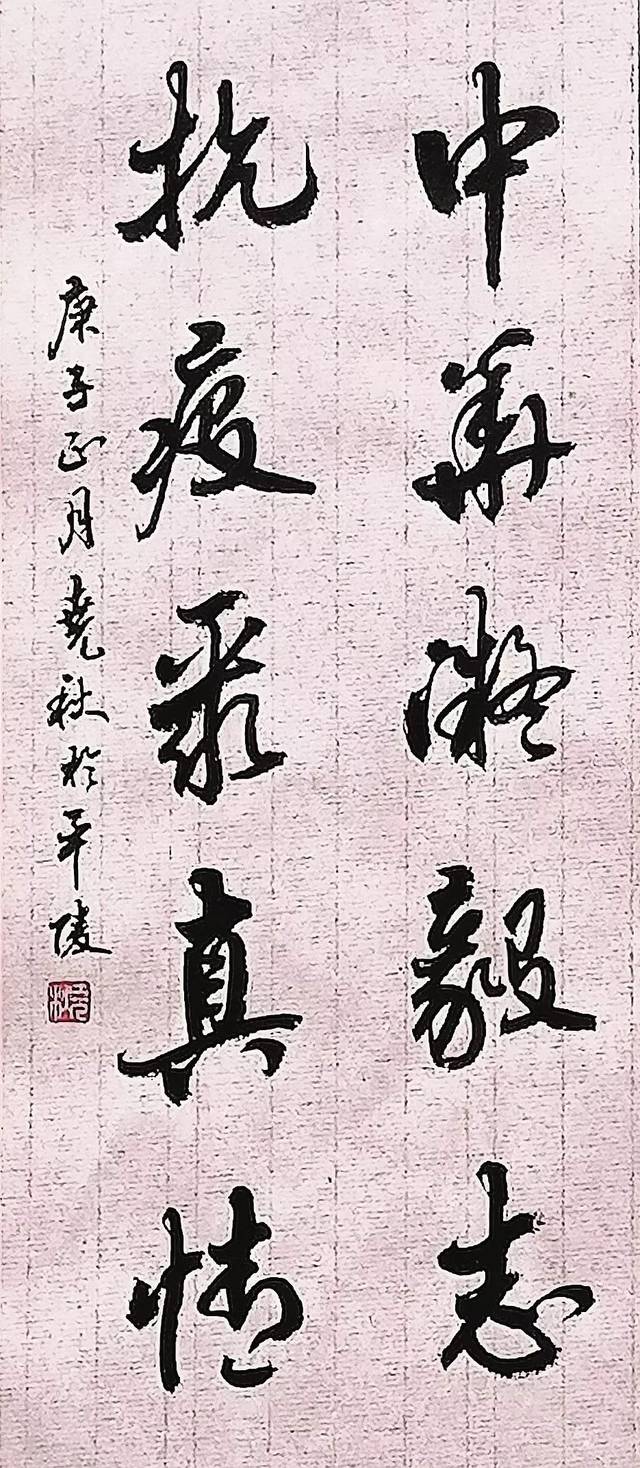 中華凝毅志
抗疫聚真情
庚子正月堯秋於平陵